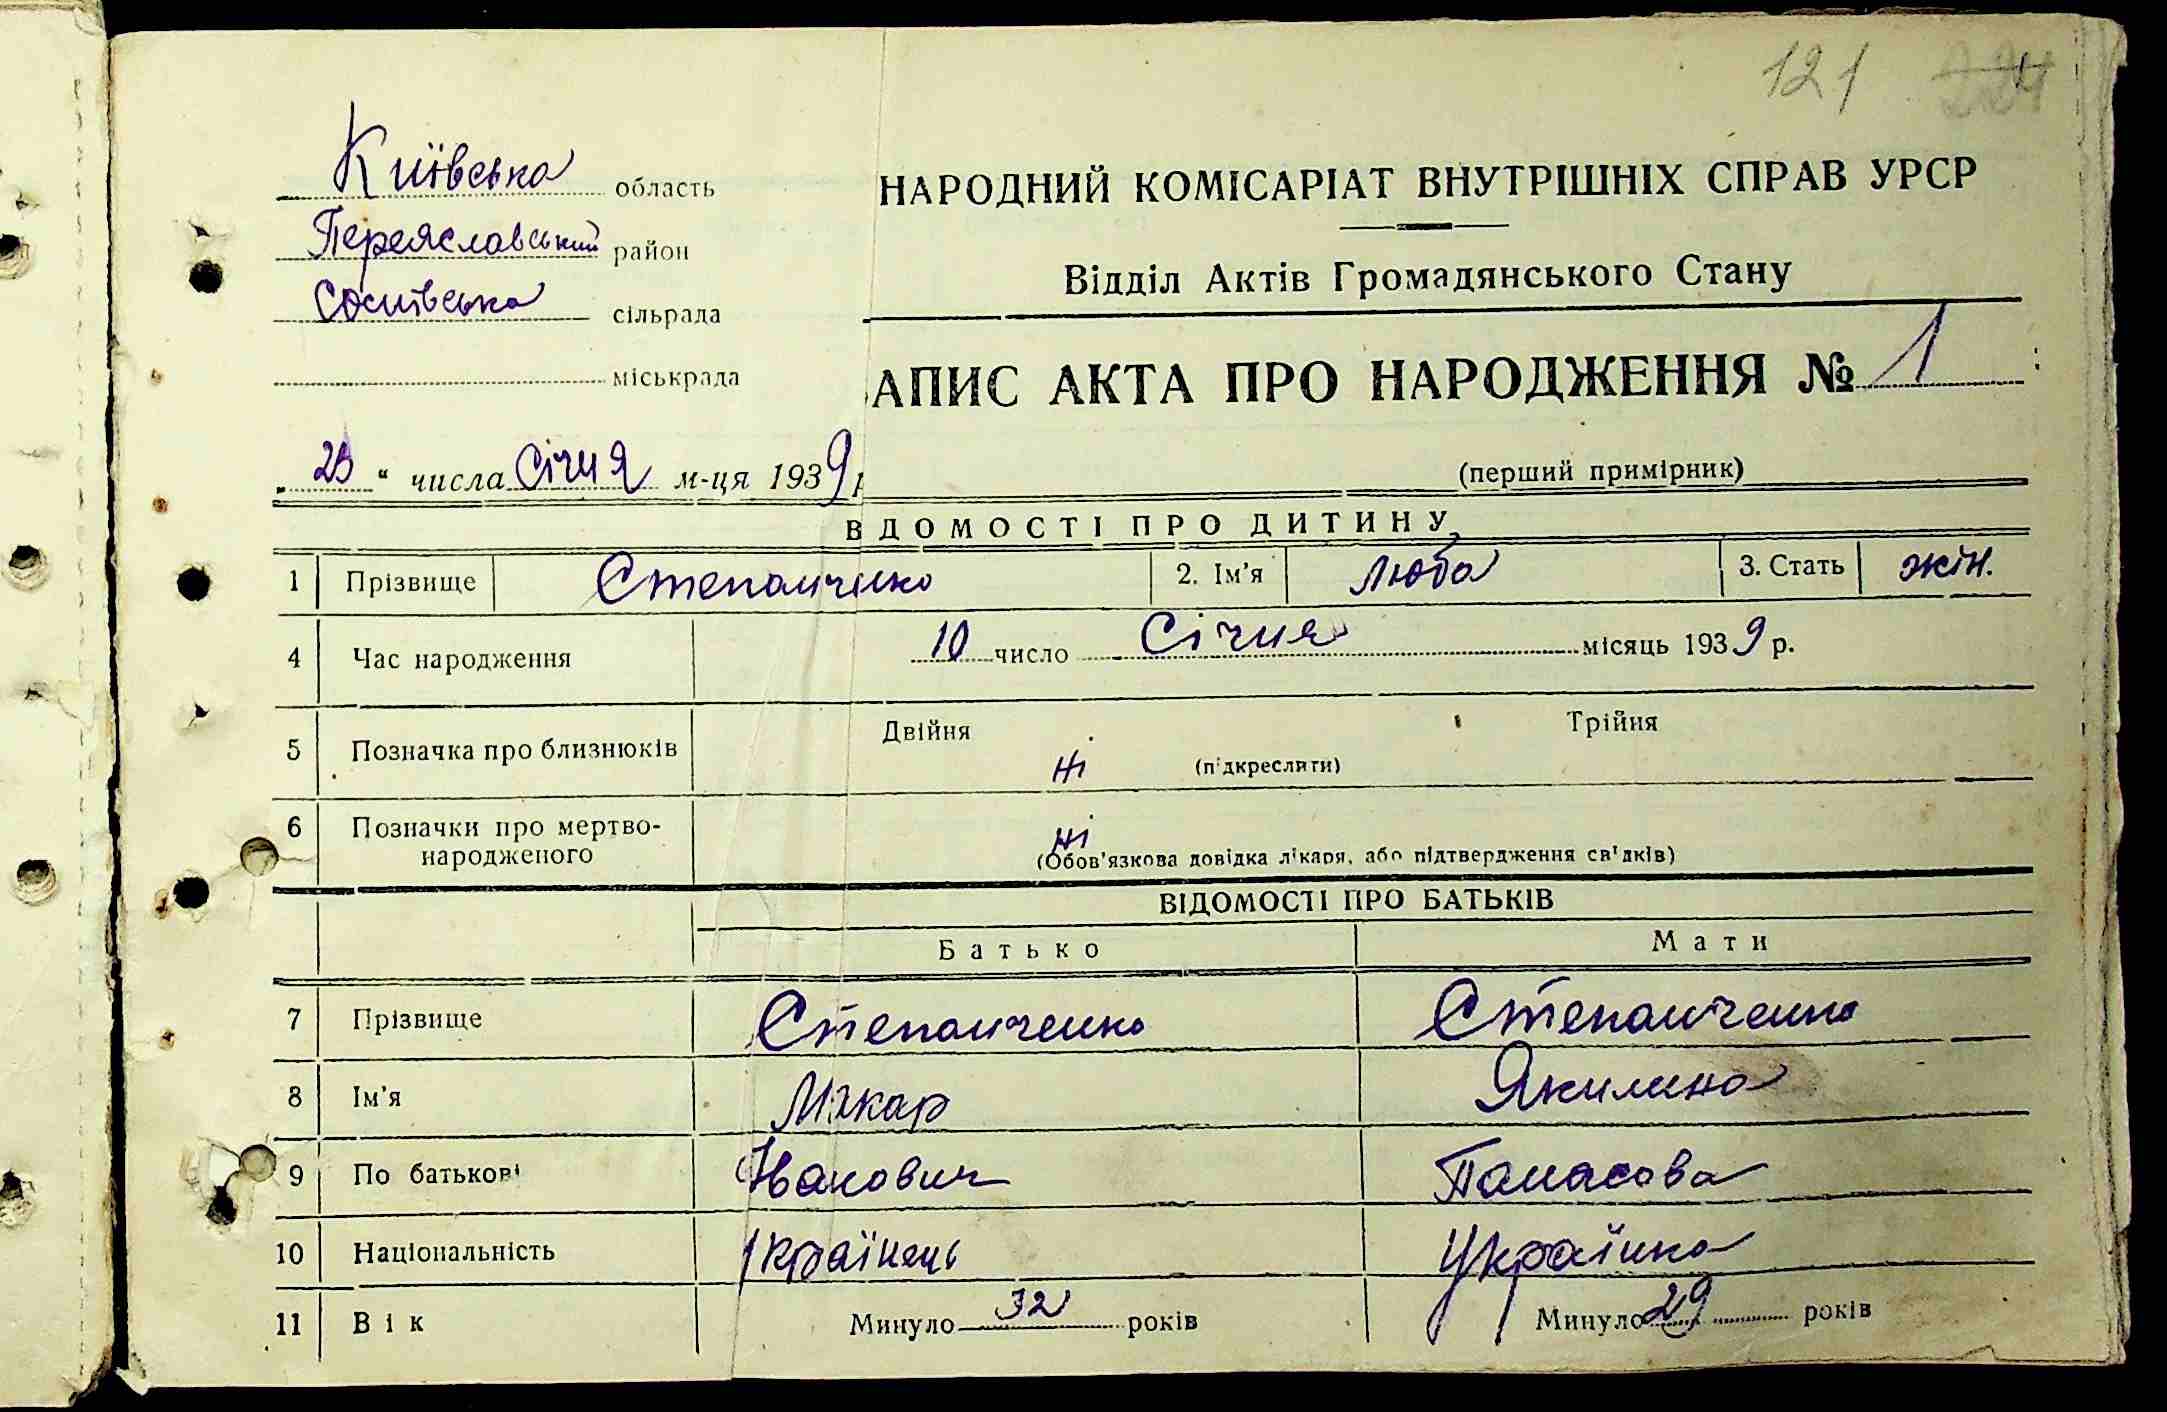 121 224
Київська область
Переяславський район
Соснівська сільрада
міськрада
НАРОДНИЙ КОМІСАРІАТ ВНУТРІШНІХ СПРАВ УРСР
Відділ Актів Громадянського Стану
АПИС АКТА ПРО НАРОДЖЕННЯ № 1
„ 23 “ числа Січня м-ця 1939 р
(перший примірник)
ВДОМОСТІ ПРО ДИТИНУ
1 Прізвище Степанченко 2. Ім'я Люба 3. Стать жін.
4 Час народження 10 число Січня місяць 1939 р.
5 Позначка про близнюків Двійня ні (підкреслити) Трійня
6 Позначки про мертво-
народженого ні
(Обов'язкова довідка лікаря, або підтвердження свідків)
ВІДОМОСТІ ПРО БАТЬКІВ
Батько Мати
7 Прізвище Степанченко Степанченко
8 Ім'я Макар Якилина
9 По батькові Іванович Панасова
10 Національність Українець Українка
11 Вік Минуло 32 років Минуло 29 років